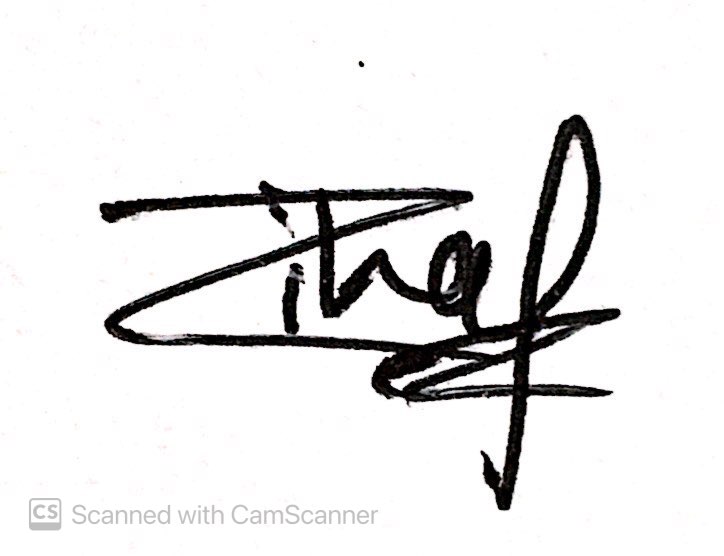 Zihaf
CS Scanned with CamScanner